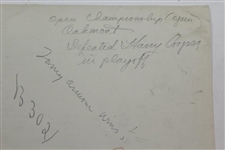 Open Championship Open
Oakmont
Defeated Harry Cooper
in playoff
Tommy Armour wins it
B302